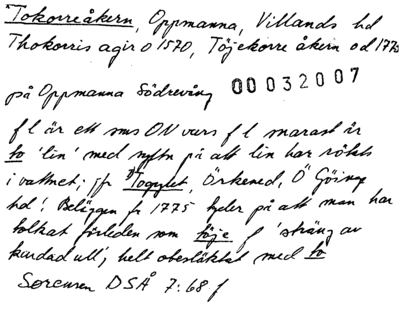 Tokorreåkern, Oppmanna, Villands hd
Thokorris agir o 1570, Töjekorre åkern od 1775
på Oppmanna Södrevång
00032007
fl är ett sms ON vars fl marast är
to 'lin' med syftn på att lin har rötts
i vattnet; jfr Togylet, Örkened, Ö Göinge
hd! Beläggen fr 1775 tyder på att man har
tolkat förleden som töje f 'sträng av
kardad ull', helt obesläktat med to
Sørensen DSÅ 7:68 f